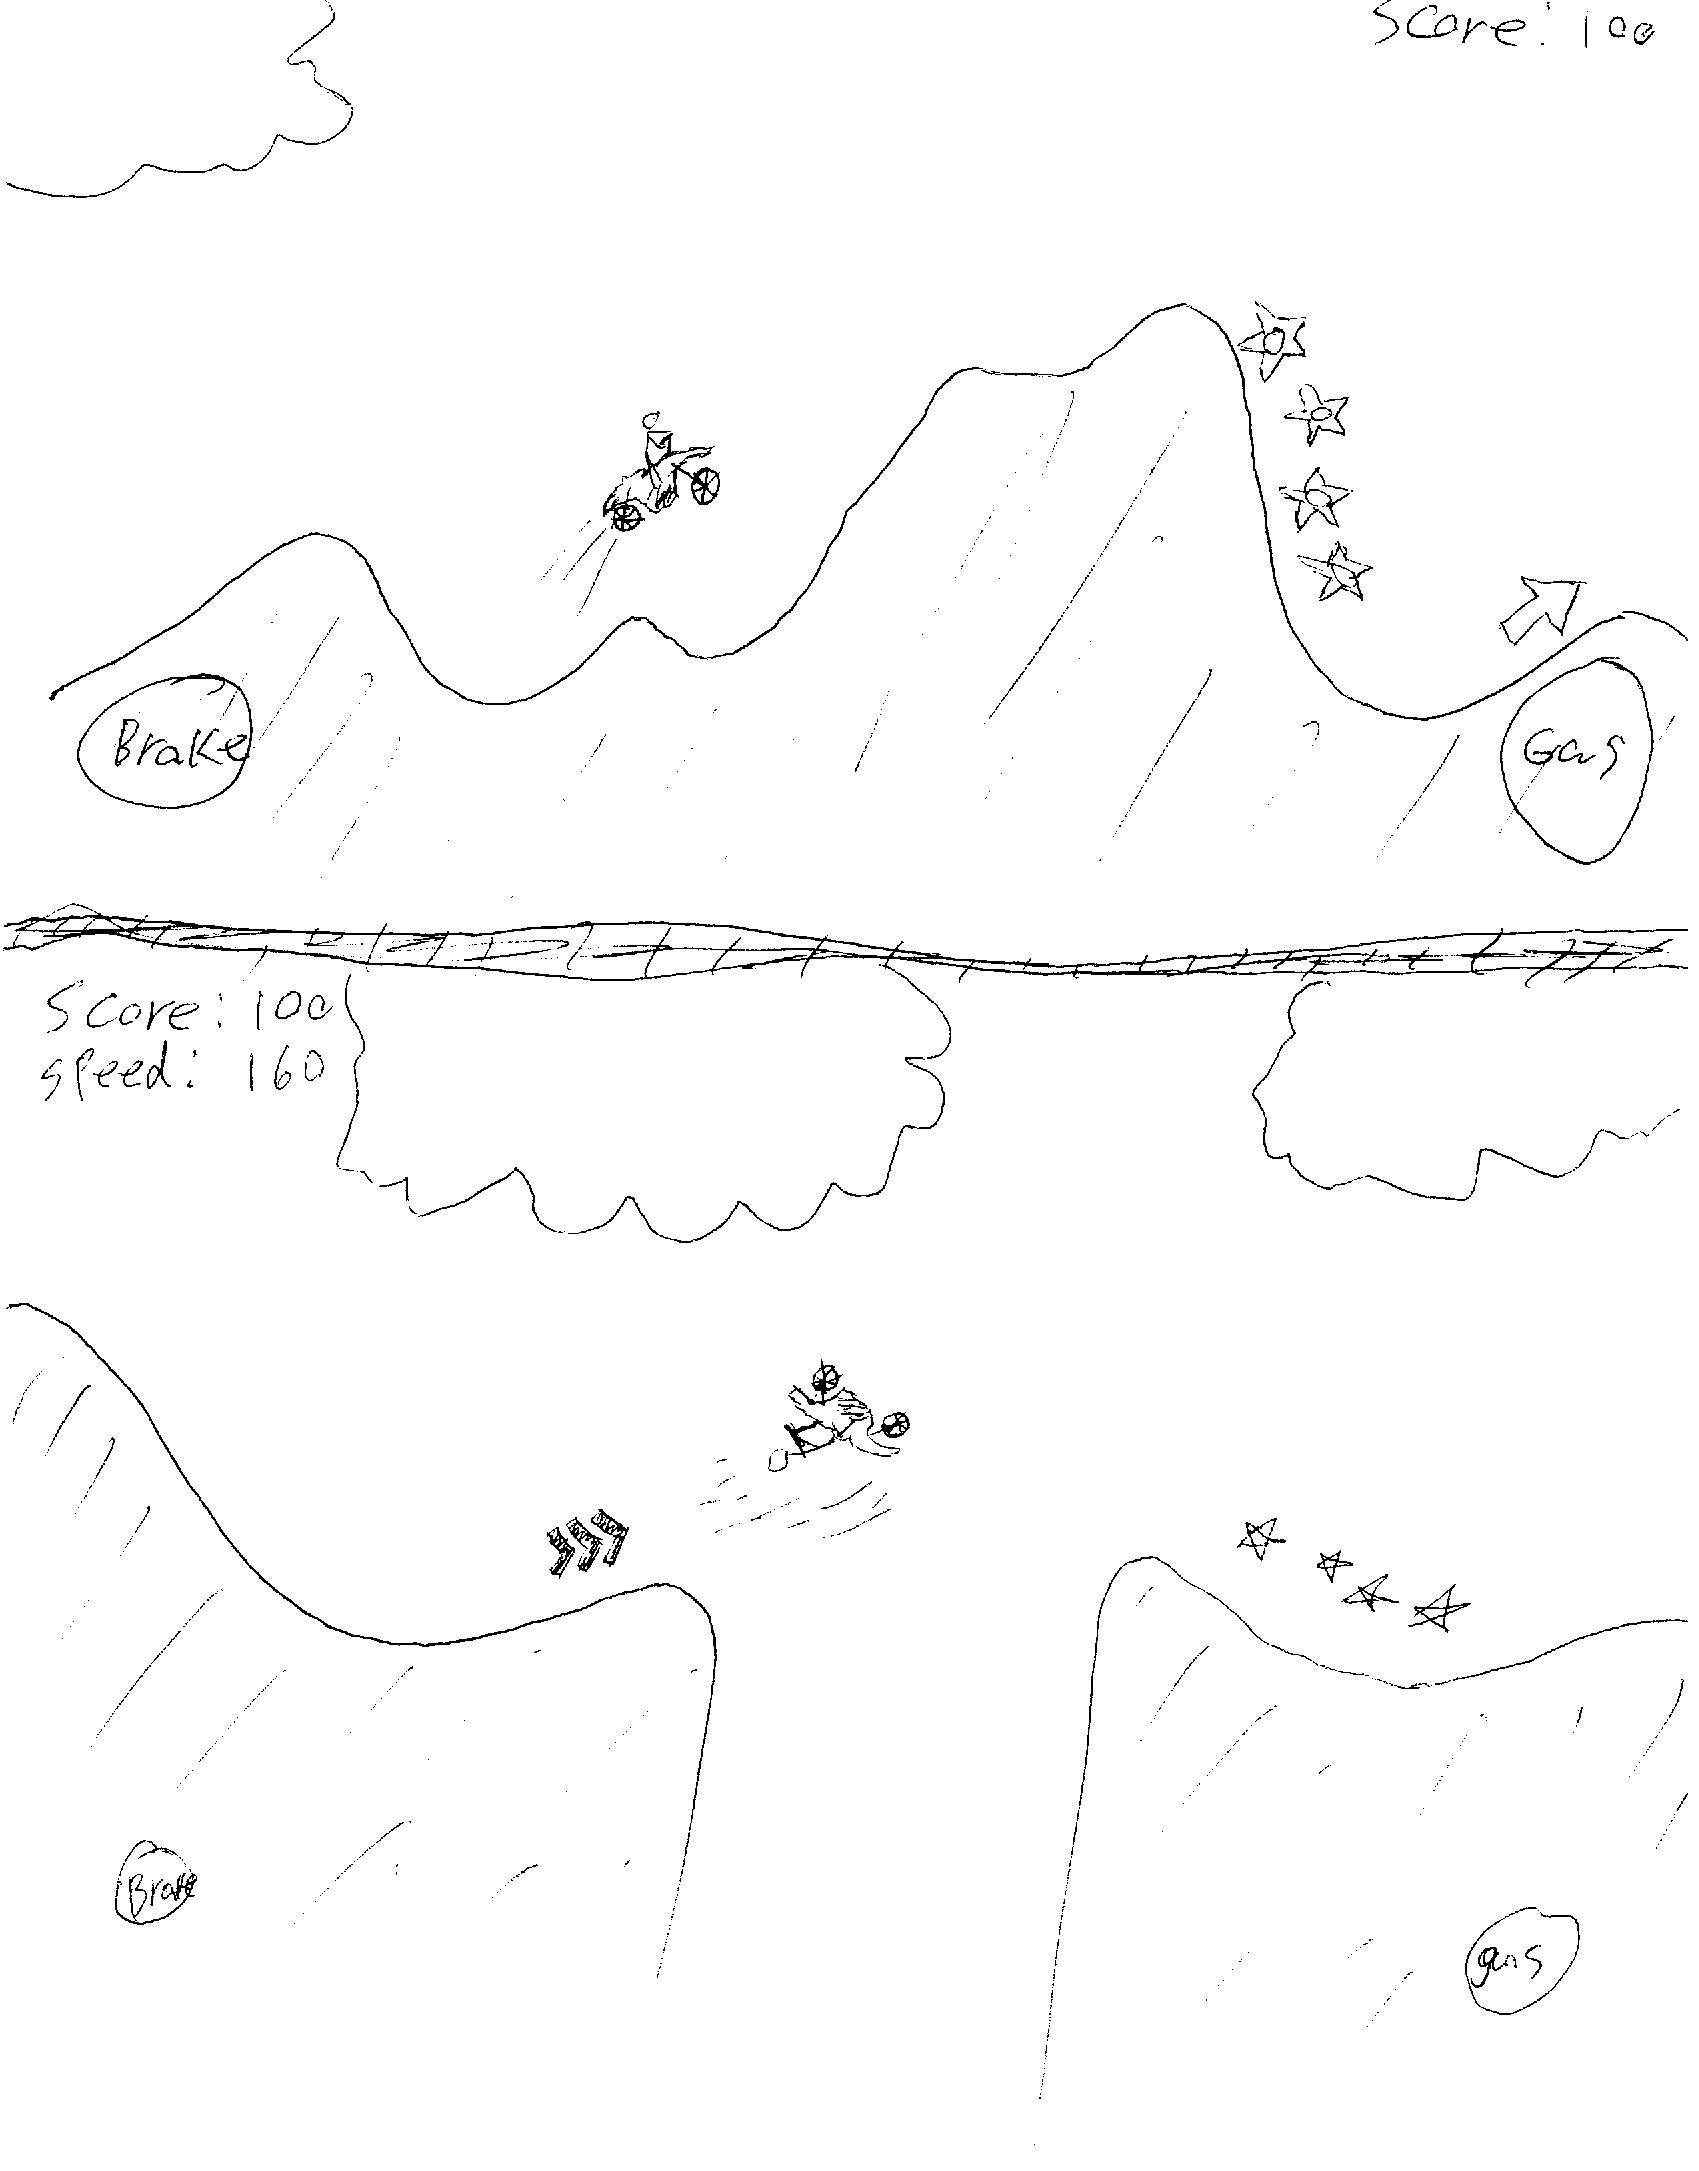 Score: 100
Brake
Gas
Score: 100
speed: 160
Brake
gas